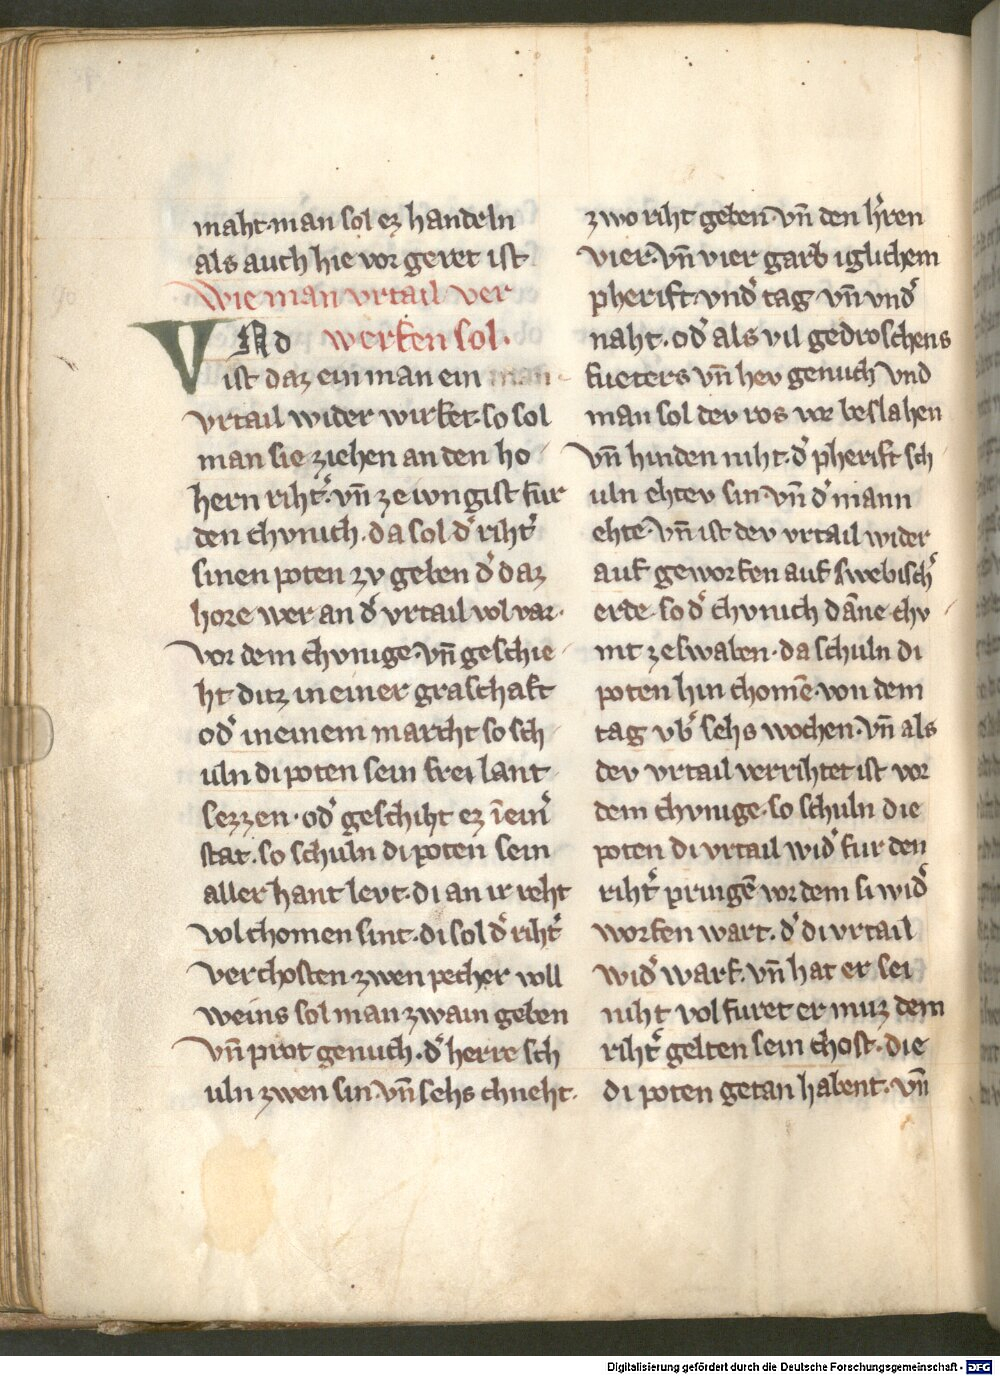 maht·man sol ez handeln
als auch hie vor geret ist
wie man vrtail ver
VNd werken sol·
ist daz ein man ein man
vrtail wider wirket·so sol
man sie ziehen an den ho
hern riht͛·vn̄ ze iungist fur
den chvnich·da sol d͛ riht͛
sinen poten zv geben d͛ daz
hore wer an d͛ vrtail vol var·
vor dem chvnige·vn̄ geschie
ht ditz in einer graschaft
od͛ in einem marcht so sch
uln di poten sein frei lant
sezzen·od͛ geschiht ez īein͛
stat·so schuln di poten sein
aller hant levt·di an ir reht
volchomen sint·di sol d͛ riht͛
verchosten·zwen pecher voll
weins sol man zwain geben
vn̄ prot genuch·d͛ herre sch
uln zwen sin·vn̄ sehs chneht·
zwo riht geben·vn̄ den h͛ren
vier·vn̄ vier garb iglichem
pherift·vnd͛ tag·vn̄ vnd͛
naht·od͛ als vil gedroschens
fueters vn̄ hev genuch vnd
man sol dev ros vor beslahen
vn̄ hinden niht·d͛ pherift sch
uln ehtev sin·vn̄ d͛ mann
ehte·vn̄ ist dev vrtail wider
auf geworfen auf swebisch͛
erde·so d͛ chvnich dāne chv
mt ze swaben·da schuln di
poten hin chomē·von dem
tag vb͛ sehs wochen·vn̄ als
dev vrtail verrihtet ist vor
dem chvnige·so schuln die
poten di vrtail wid͛ fur den
riht͛ pringē·vor dem si wid͛
worfen wart·d͛ di vrtail
wid͛ warf·vn̄ hat er sei
niht vol furet er muz dem
riht͛ gelten sein chost·die
di poten getan habent·vn̄
Digitalisierung gefördert durch die Deutsche Forschungsgemeinschaft - DFG